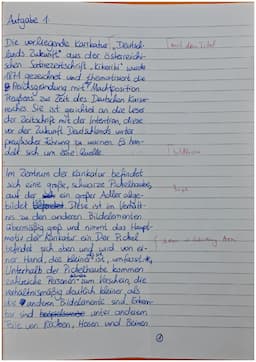 Aufgabe 1
Die vorliegende Karikatur „Deutsch-
lands Zukunft" aus der österreichi-
schen Satirezeitschrift „Kikeriki" wurde
1871 gezeichnet und thematisiert die
Reichsgründung mit Machtposition
Preußens zur Zeit des Deutschen Kaiser-
reiches. Sie ist gerichtet an die Leser
der Zeitschrift mit der Intention, diese
vor der Zukunft Deutschlands unter
preußischer Führung zu warnen. Es han-
delt sich um eine Quelle.
Im Zentrum der Karikatur befindet
sich eine große, schwarze Pickelhaube,
auf der ein großer Adler abge-
bildet. Diese ist im Verhält-
nis zu den anderen Bildelementen
übermäßig groß und nimmt das Haupt-
motiv der Karikatur ein. Der Pickel
befindet sich oben und wird von ei-
ner Hand, die kleiner ist, umfasst.
Unterhalb der Pickelhaube kommen
zahlreiche Personen zum Vorschein, die
verhältnismäßig deutlich kleiner als
die anderen Bildelemente sind. Erkenn-
bar sind unter anderem
Teile von Köpfen, Hosen und Beinen
mit dem Titel